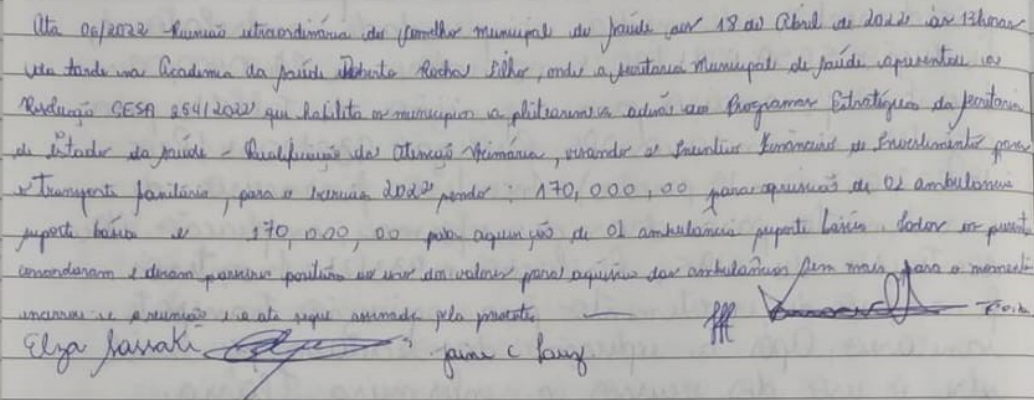 Ata 06/2022 Reunião extraordinária do Conselho municipal de saúde aos 18 de Abril de 2022 às 13 horas
da tarde na Academia da saúde Roberto Rocha Filho, onde a secretaria Municipal de saúde apresentou a
Resolução CESA 254/2022 que habilita os municípios a pleitearem a adesão aos Programas Estratégicos da secretaria
de Estado da saúde - Qualificação da Atenção Primária, visando o Incentivo Financeiro de Investimento para
o Transporte sanitário, para o exercício 2022 sendo: 170,000,00 para aquisição de 01 ambulância
suporte básico e 170,000,00 para aquisição de 01 ambulância suporte básico. Todos os presentes
concordaram e deram parecer positivo ao uso dos valores para aquisição das ambulâncias Sem mais para o momento
encerrou-se a reunião e a ata segue assinada pelos presentes
Elza Sassaki Jaine C Souza